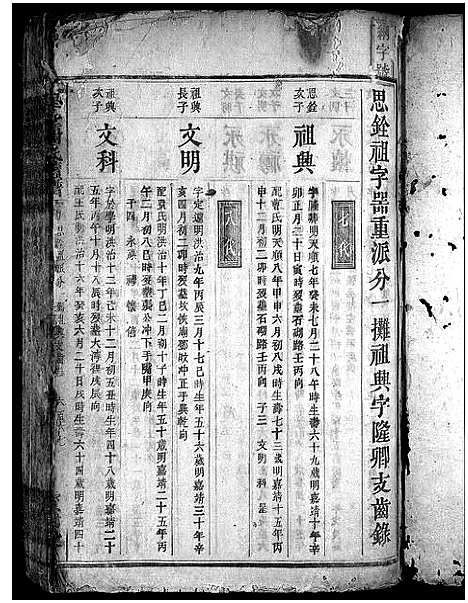 思銓祖字器重派分一攤祖興字隆卿支齒錄
七代
思銓次子
祖興
字隆卿明天順七年癸未七月二十八午時生壽六十九歲明嘉靖十年辛
卯正月二十日寅時歿墓石砌路壬丙向
配曹氏明天順八年甲申六月初八戌時生壽七十三歲明嘉靖十五年丙
申十二月初二卯時歿墓石砌路壬丙向 子三 文明 科
八代
祖興長子
文明
字定遠明洪治九年丙辰三月十七巳時生五十六歲明嘉靖三十年辛
亥四月初二卯時歿墓坎俠廟鄧啟冲正于巽乾向
配袁氏明洪治十年丁巳二月初十子時生年五十歲明嘉靖二十五年丙
午二月初八巳時歿墓張公冲下手甲庚向
子四 永
祖興次子
文科
字於學明洪治十三年己未十二月初五丑時生年四十八歲明嘉靖二十
五年丙午十月十八辰時歿墓大灣裡戌辰向
配王氏明洪治十六年癸亥六月二十日辰時生壽六十四歲明嘉靖四十